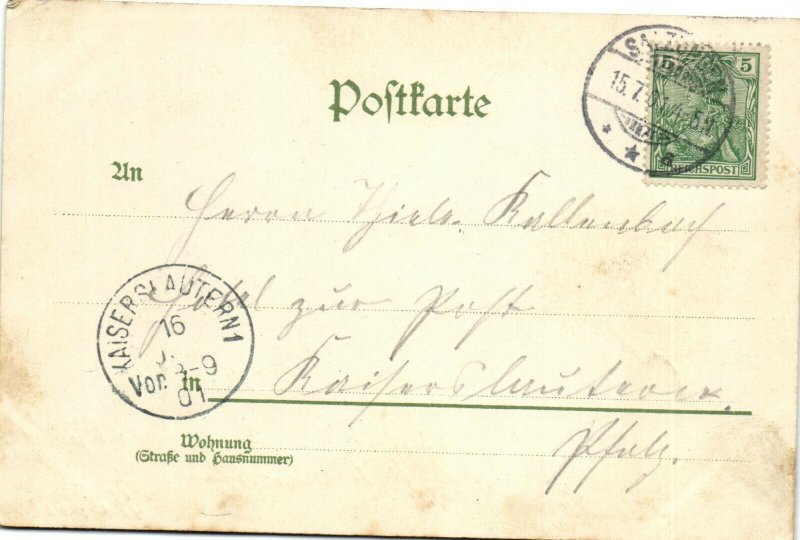 Postkarte
5
REICHSPOST
15.7.01
An
Herrn Thiele-Kallenbach
Hotel zur Post
KAISERSLAUTERN 1
16
8-9
Vor
01
in Kaiserslautern.
Wohnung
(Straße und Hausnummer)
Pfalz.